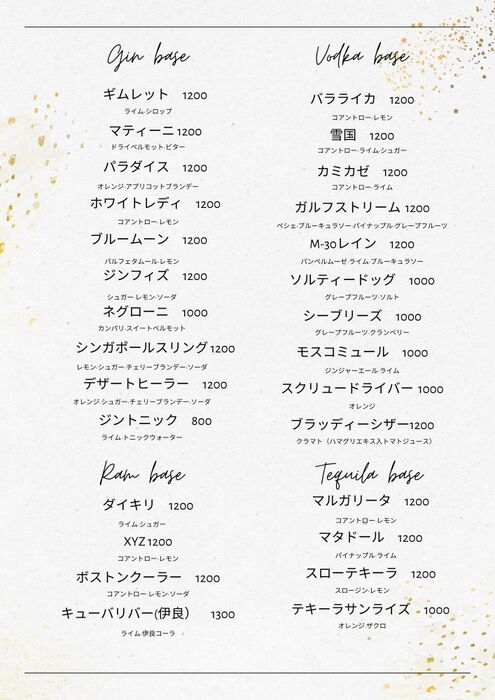 Gin base
ギムレット 1200
ライム·シロップ
マティーニ 1200
ドライベルモット·ビター
パラダイス 1200
オレンジ·アプリコットブランデー
ホワイトレディ 1200
コアントロー·レモン
ブルームーン 1200
パルフェタムール·レモン
ジンフィズ 1200
シュガー·レモン·ソーダ
ネグローニ 1000
カンパリ·スイートベルモット
シンガポールスリング 1200
レモン·シュガー·チェリーブランデー·ソーダ
デザートヒーラー 1200
オレンジ·シュガー·チェリーブランデー·ソーダ
ジントニック 800
ライム·トニックウォーター
Ram base
ダイキリ 1200
ライム·シュガー
XYZ 1200
コアントロー·レモン
ボストンクーラー 1200
コアントロー·レモン·ソーダ
キューバリバー(伊良) 1300
ライム·伊良コーラ
Vodka base
バラライカ 1200
コアントロー·レモン
雪国 1200
コアントロー·ライム·シュガー
カミカゼ 1200
コアントロー·ライム
ガルフストリーム 1200
ペシェ·ブルーキュラソー·パイナップル·グレープフルーツ
M-30レイン 1200
パンペルムーゼ·ライム·ブルーキュラソー
ソルティードッグ 1000
グレープフルーツ·ソルト
シーブリーズ 1000
グレープフルーツ·クランベリー
モスコミュール 1000
ジンジャーエール·ライム
スクリュードライバー 1000
オレンジ
ブラッディーシザー1200
クラマト（ハマグリエキス入トマトジュース）
Tequila base
マルガリータ 1200
コアントロー·レモン
マタドール 1200
パイナップル·ライム
スローテキーラ 1200
スロージン·レモン
テキーラサンライズ 1000
オレンジ·ザクロ